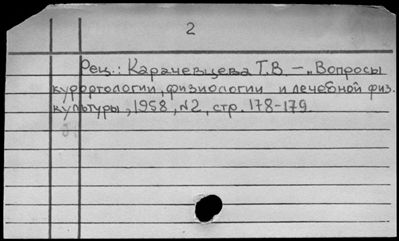 2
Рец.: Карачевцева Т.В. – „Вопросы
курортологии, физиологии и лечебной физ.
культуры, 1958, №2, стр. 178-179.